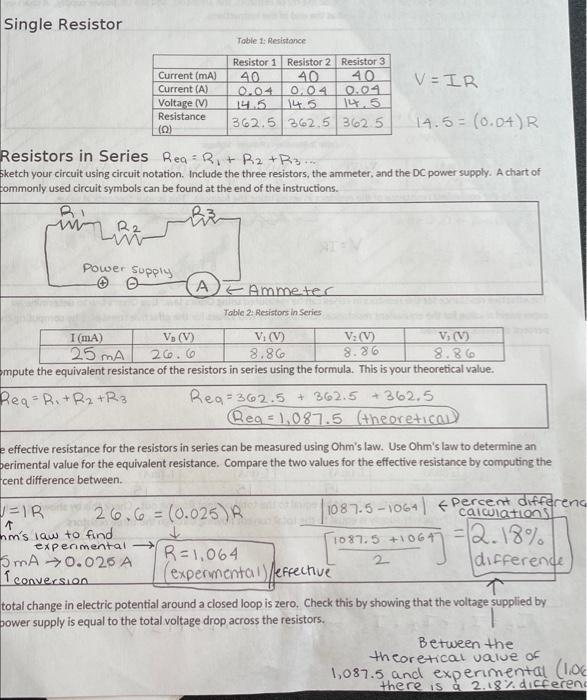 Single Resistor
Table 1: Resistance
Resistor 1 Resistor 2 Resistor 3
Current (mA) 40 40 40
Current (A) 0.04 0.04 0.04
Voltage (V) 14.5 14.5 14.5
Resistance (Ω) 362.5 362.5 362.5
V = IR
14.5 = (0.04) R
Resistors in Series Req = R1 + R2 + R3...
Sketch your circuit using circuit notation. Include the three resistors, the ammeter, and the DC power supply. A chart of
commonly used circuit symbols can be found at the end of the instructions.
R1 R2 R3
Power Supply
+ -
A ← Ammeter
Table 2: Resistors in Series
I (mA) V₁ (V) V₂ (V) V₃ (V)
25 mA 26.6 8.86 8.86 8.86
ompute the equivalent resistance of the resistors in series using the formula. This is your theoretical value.
Req = R1 + R2 + R3
Req = 362.5 + 362.5 + 362.5
Req = 1,087.5 (theoretical)
e effective resistance for the resistors in series can be measured using Ohm's law. Use Ohm's law to determine an
perimental value for the equivalent resistance. Compare the two values for the effective resistance by computing the
rcent difference between.
V = IR 26.6 = (0.025) R
↑
hm's law to find
experimental →
5mA → 0.025 A
↑ conversion
↓
R = 1,064
(experimental)/effective
|1087.5 - 1064| ← Percent differenc
calculations
[1087.5 + 1064 / 2] = 2.18%
difference
↑
total change in electric potential around a closed loop is zero. Check this by showing that the voltage supplied by
power supply is equal to the total voltage drop across the resistors.
Between the
theoretical value of
1,087.5 and experimental (1,06
there is a 2.18% differen